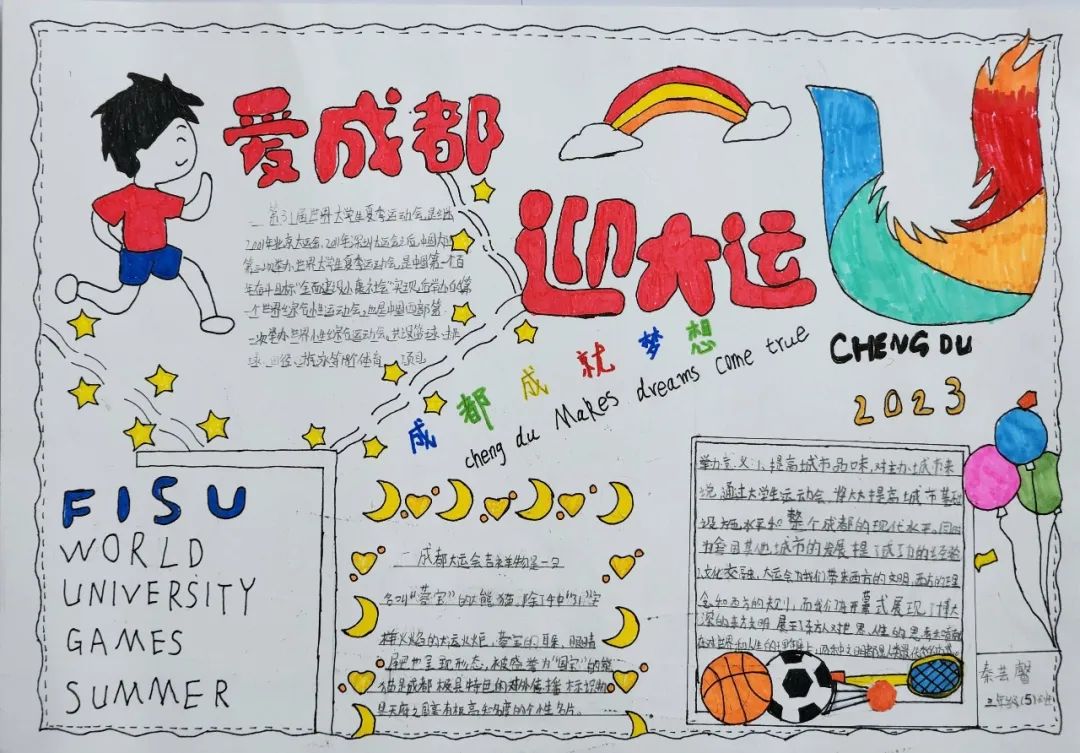 爱成都
迎大运
第31届世界大学生夏季运动会,是继
2001年北京大运会、2011年深圳大运会之后,中国大陆
第三次举办世界大学生夏季运动会,是中国第一个百
年奋斗目标"全面建设小康社会"实现后举办的第
一个世界综合性运动会,也是中国西部第
一次举办世界性综合运动会,共设篮球、排
球、田径、游泳等18个体育项目
CHENG DU
2023
成都成就梦想
cheng du Makes dreams come true
FISU
WORLD
UNIVERSITY
GAMES
SUMMER
成都大运会吉祥物是一只
名叫"蓉宝"的熊猫,除了手中"31"字
样火焰的大运火炬,蓉宝的耳朵、眼睛
尾巴也呈现形态,被盛誉为"国宝"的熊
猫是成都极具特色的对外传播标识物
是天府之国富有极高知名度的个性名片。
举办意义:1、提高城市品味,对主办城市来
说,通过大学生运动会,将大大提高城市基础
设施水平和整个成都的现代水平。同时
为全国其他城市的发展提了成功的经验
文化交融,大运会为我们带来西方的文明,西方的理
念和西方的知识,而我们在开幕式展现了博大
深的东方文明,展示了东方人对世界、人生的思考
秦芸馨
三年级(5)班